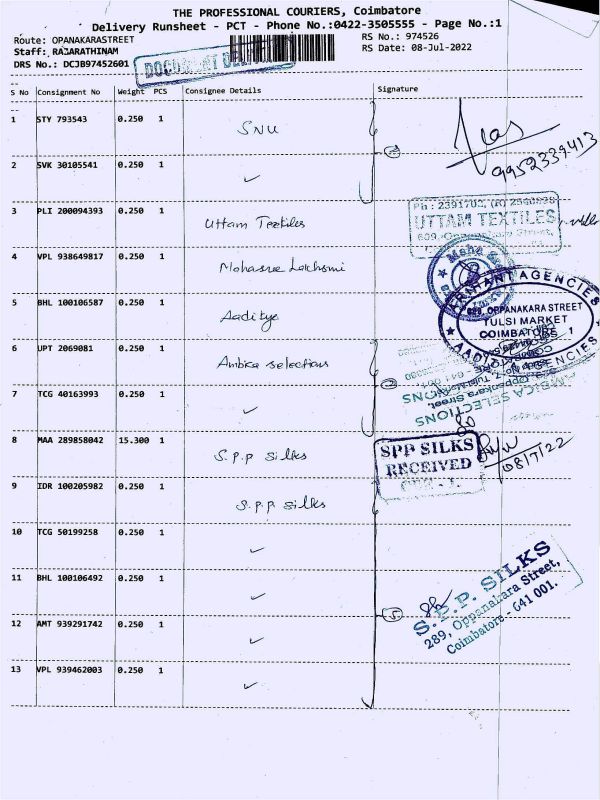 THE PROFESSIONAL COURIERS, Coimbatore
Delivery Runsheet - PCT - Phone No.:0422-3505555 - Page No.:1
Route: OPANAKARASTREET RS No.: 974526
Staff: RAJARATHINAM RS Date: 08-Jul-2022
DRS No.: DCJB97452601
DOCUMENT
S No Consignment No Weight PCS Consignee Details Signature
1 STY 793543 0.250 1 SNU
9952339413
2 SVK 30105541 0.250 1 ✓
3 PLI 200094393 0.250 1 Uttam Textiles
Ph : 2391702, (R)
UTTAM TEXTILES
4 VPL 938649817 0.250 1 Mohasree Lakhsmi
5 BHL 100106587 0.250 1 Aaditya
AGENCIES
OPPANAKARA STREET
TULSI MARKET
COIMBATORE - 1
6 UPT 2069081 0.250 1 Ambica selections
AMBICA SELECTIONS
7 TCG 40163993 0.250 1 ✓
8 MAA 289858042 15.300 1 S.p.p silks
SPP SILKS
RECEIVED
08/7/22
9 IDR 100205982 0.250 1 S.p.p. silks
10 TCG 50199258 0.250 1 ✓
11 BHL 100106492 0.250 1 ✓
5
S.P.P. SILKS
289, Oppanakara Street,
Coimbatore - 641 001.
12 AMT 939291742 0.250 1 ✓
13 VPL 939462003 0.250 1 ✓